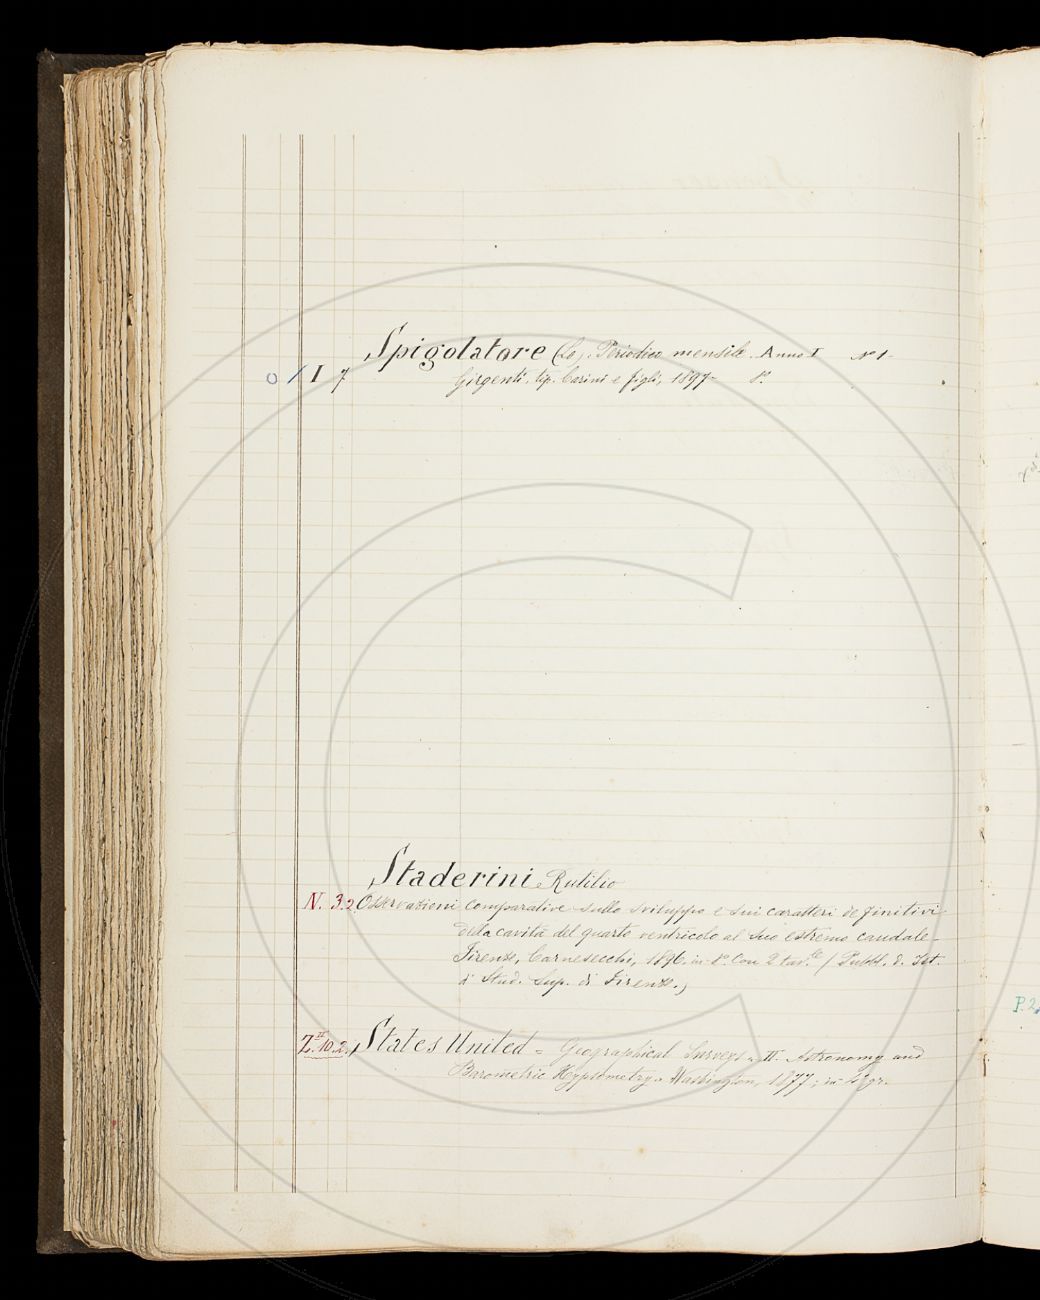 Spigolatore (Lo). Periodico mensile. Anno I N° 1-
o / I 7 Girgenti, tip. Carini e figli, 1897- 8°.
Staderini Rutilio
N. 3.2. Osservazioni comparative sullo sviluppo e sui caratteri definitivi
della cavità del quarto ventricolo al suo estremo caudale-
Firenze, Carnesecchi, 1896, in 8°. Con 2 tav.le (Pubbl. d. Ist.
di Stud. Sup. di Firenze.)
Z.II.10.2. States United = Geographical Surveys. II. Astronomy and
Barometric Hypsometry. Washington, 1877; in 4° gr.
P.2